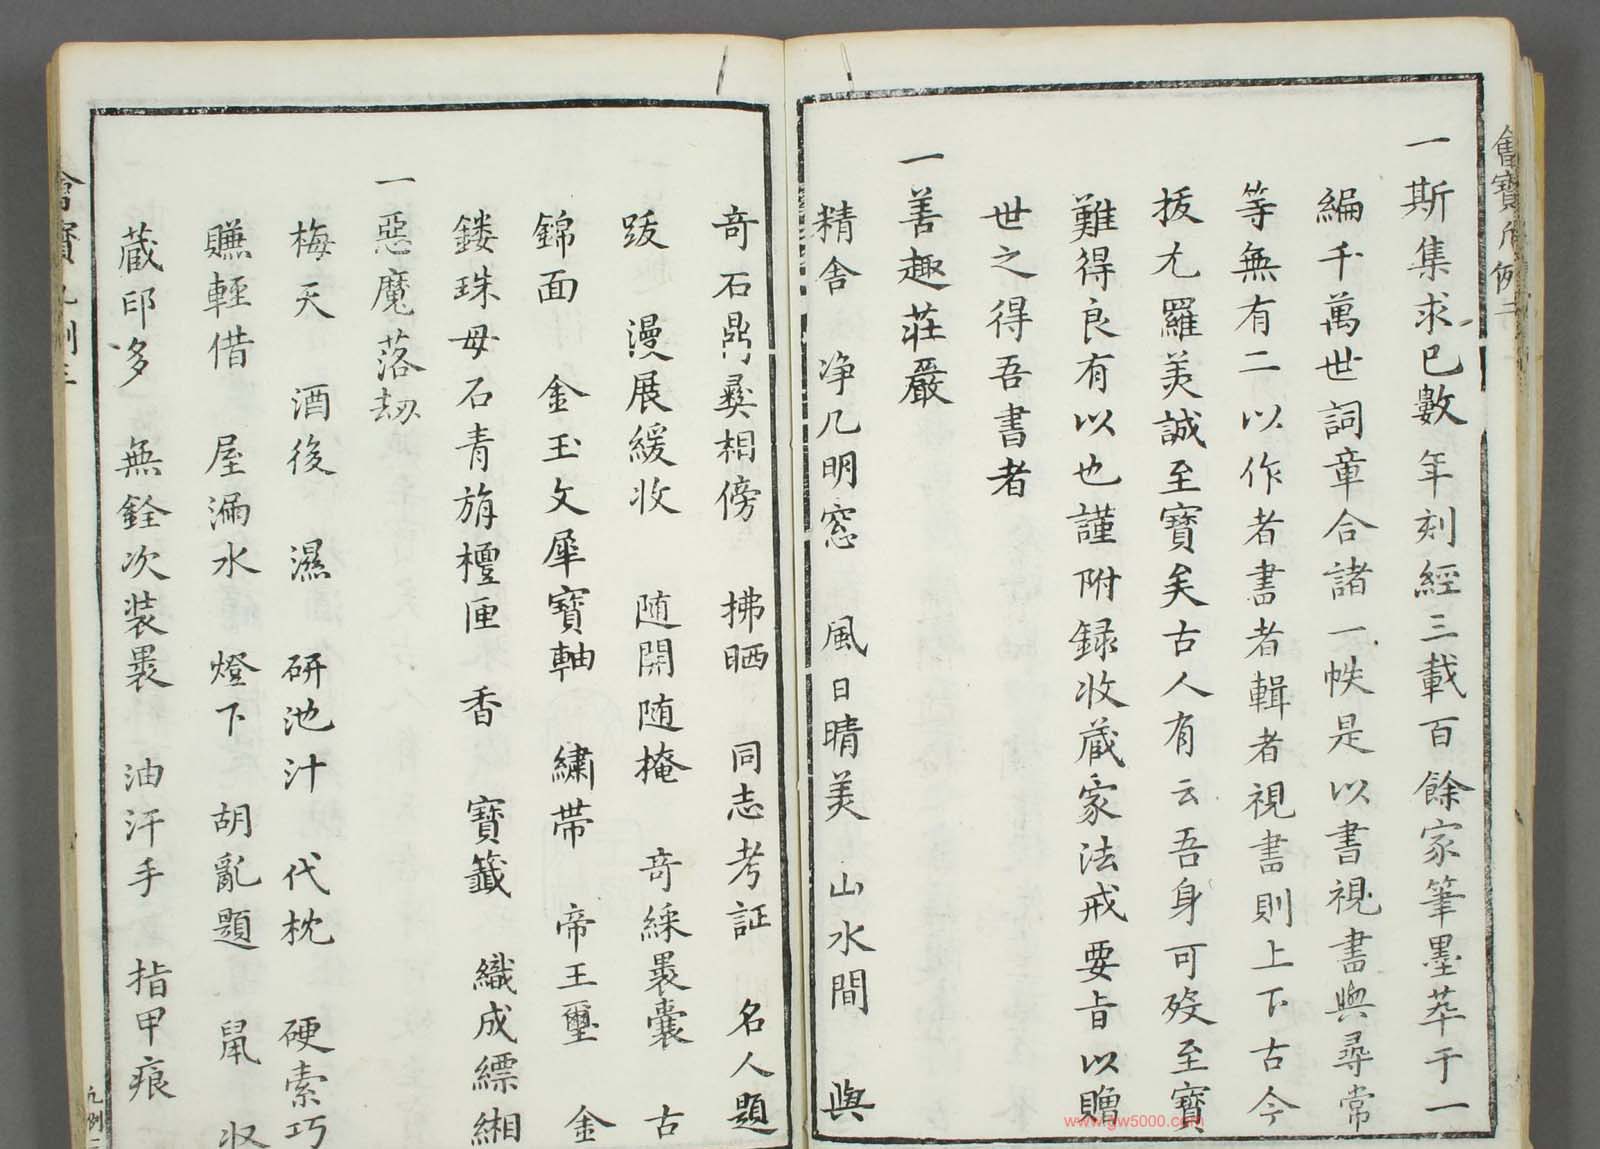 一斯集求已數年刻經三載百餘家筆墨萃于一
編千萬世詞章合諸一帙是以書視書與尋常
等無有二以作者書者輯者視書則上下古今
拔尤羅美誠至寶矣古人有云吾身可歿至寶
難得良有以也謹附録收蔵家法戒要旨以贈
世之得吾書者
一善趣莊嚴
精舎 净几明窓 風日晴美 山水間 與
奇石鼎彜相傍 拂晒 同志考証 名人題
跋 漫展緩收 随開随掩 奇綵褁囊 古
錦面 金玉文犀寶軸 繡帶 帝王璽 金
鏤珠母石青旃檀匣 香 寶籤 織成縹緗
一惡魔落劫
梅天 酒後 濕 研池汁 代枕 硬索巧
賺輕借 屋漏水 燈下 胡亂題 䑕 收
蔵印多 無銓次装褁 油汗手 指甲痕
www.gw5000.com